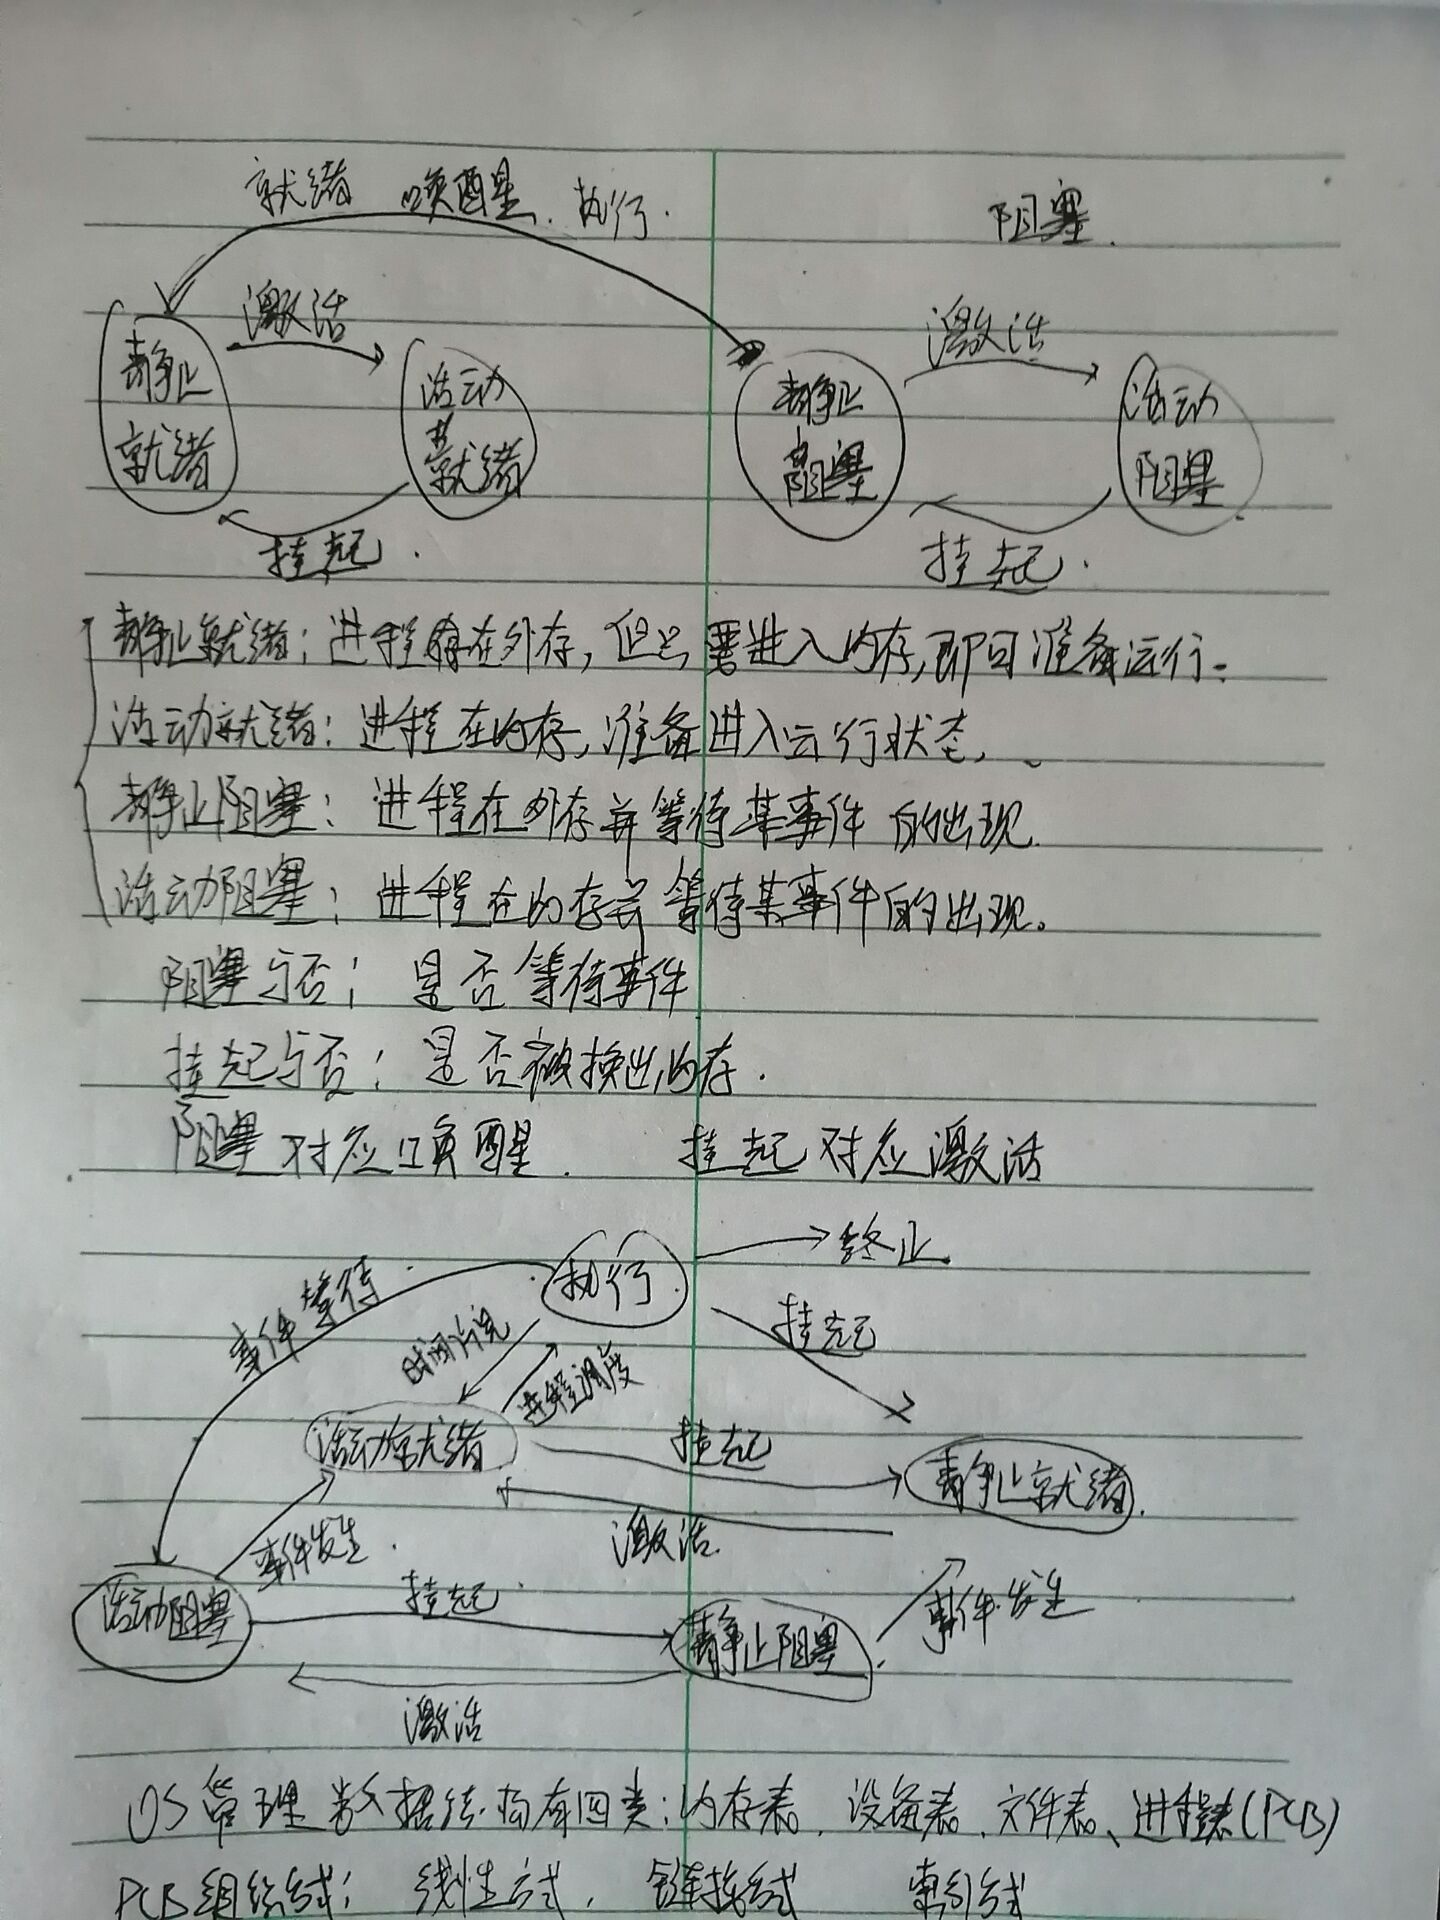 就绪 唤醒 执行. 阻塞.
激活 激活
静止就绪 活动就绪 静止阻塞 活动阻塞
挂起. 挂起.
静止就绪:进程存在外存,但只要进入内存,即可准备运行。
活动就绪:进程在内存,准备进入运行状态,
静止阻塞:进程在外存并等待某事件的出现.
活动阻塞:进程在内存并等待某事件的出现。
阻塞与否:是否等待事件
挂起与否:是否被换出内存.
阻塞对应唤醒. 挂起对应激活
执行. 终止.
事件等待. 时间片完 进程调度 挂起
活动就绪 挂起 静止就绪.
激活.
事件发生. 事件发生
活动阻塞 挂起. 静止阻塞.
激活
OS管理数据结构有四类:内存表、设备表、文件表、进程表(PCB)
PCB组织方式:线性方式, 链接方式 索引方式